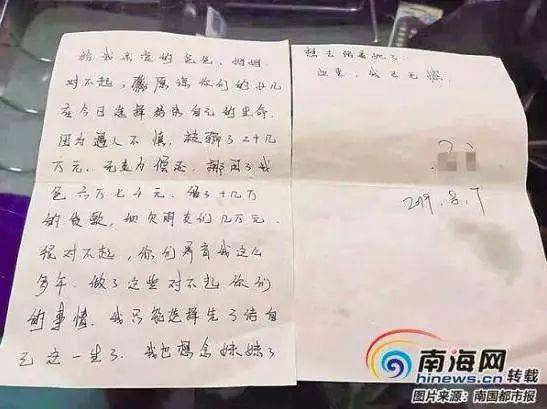 给我亲爱的爸爸、妈妈
对不起，原谅你们的女儿
在今日选择结束自己的生命
因为遇人不慎，被骗了二十几
万元，无力偿还，挪用了我
爸六万七千元，借了十几万
的贷款，加欠朋友们几万元
很对不起，你们养育我这么
多年，做了这些对不起你们
的事情，我只能选择先了结自
己这一生了，我也想念妹妹了
想去陪着她了
这里，我已无憾
2019.8.7
南海网 转载
hinews.cn
图片来源：南国都市报